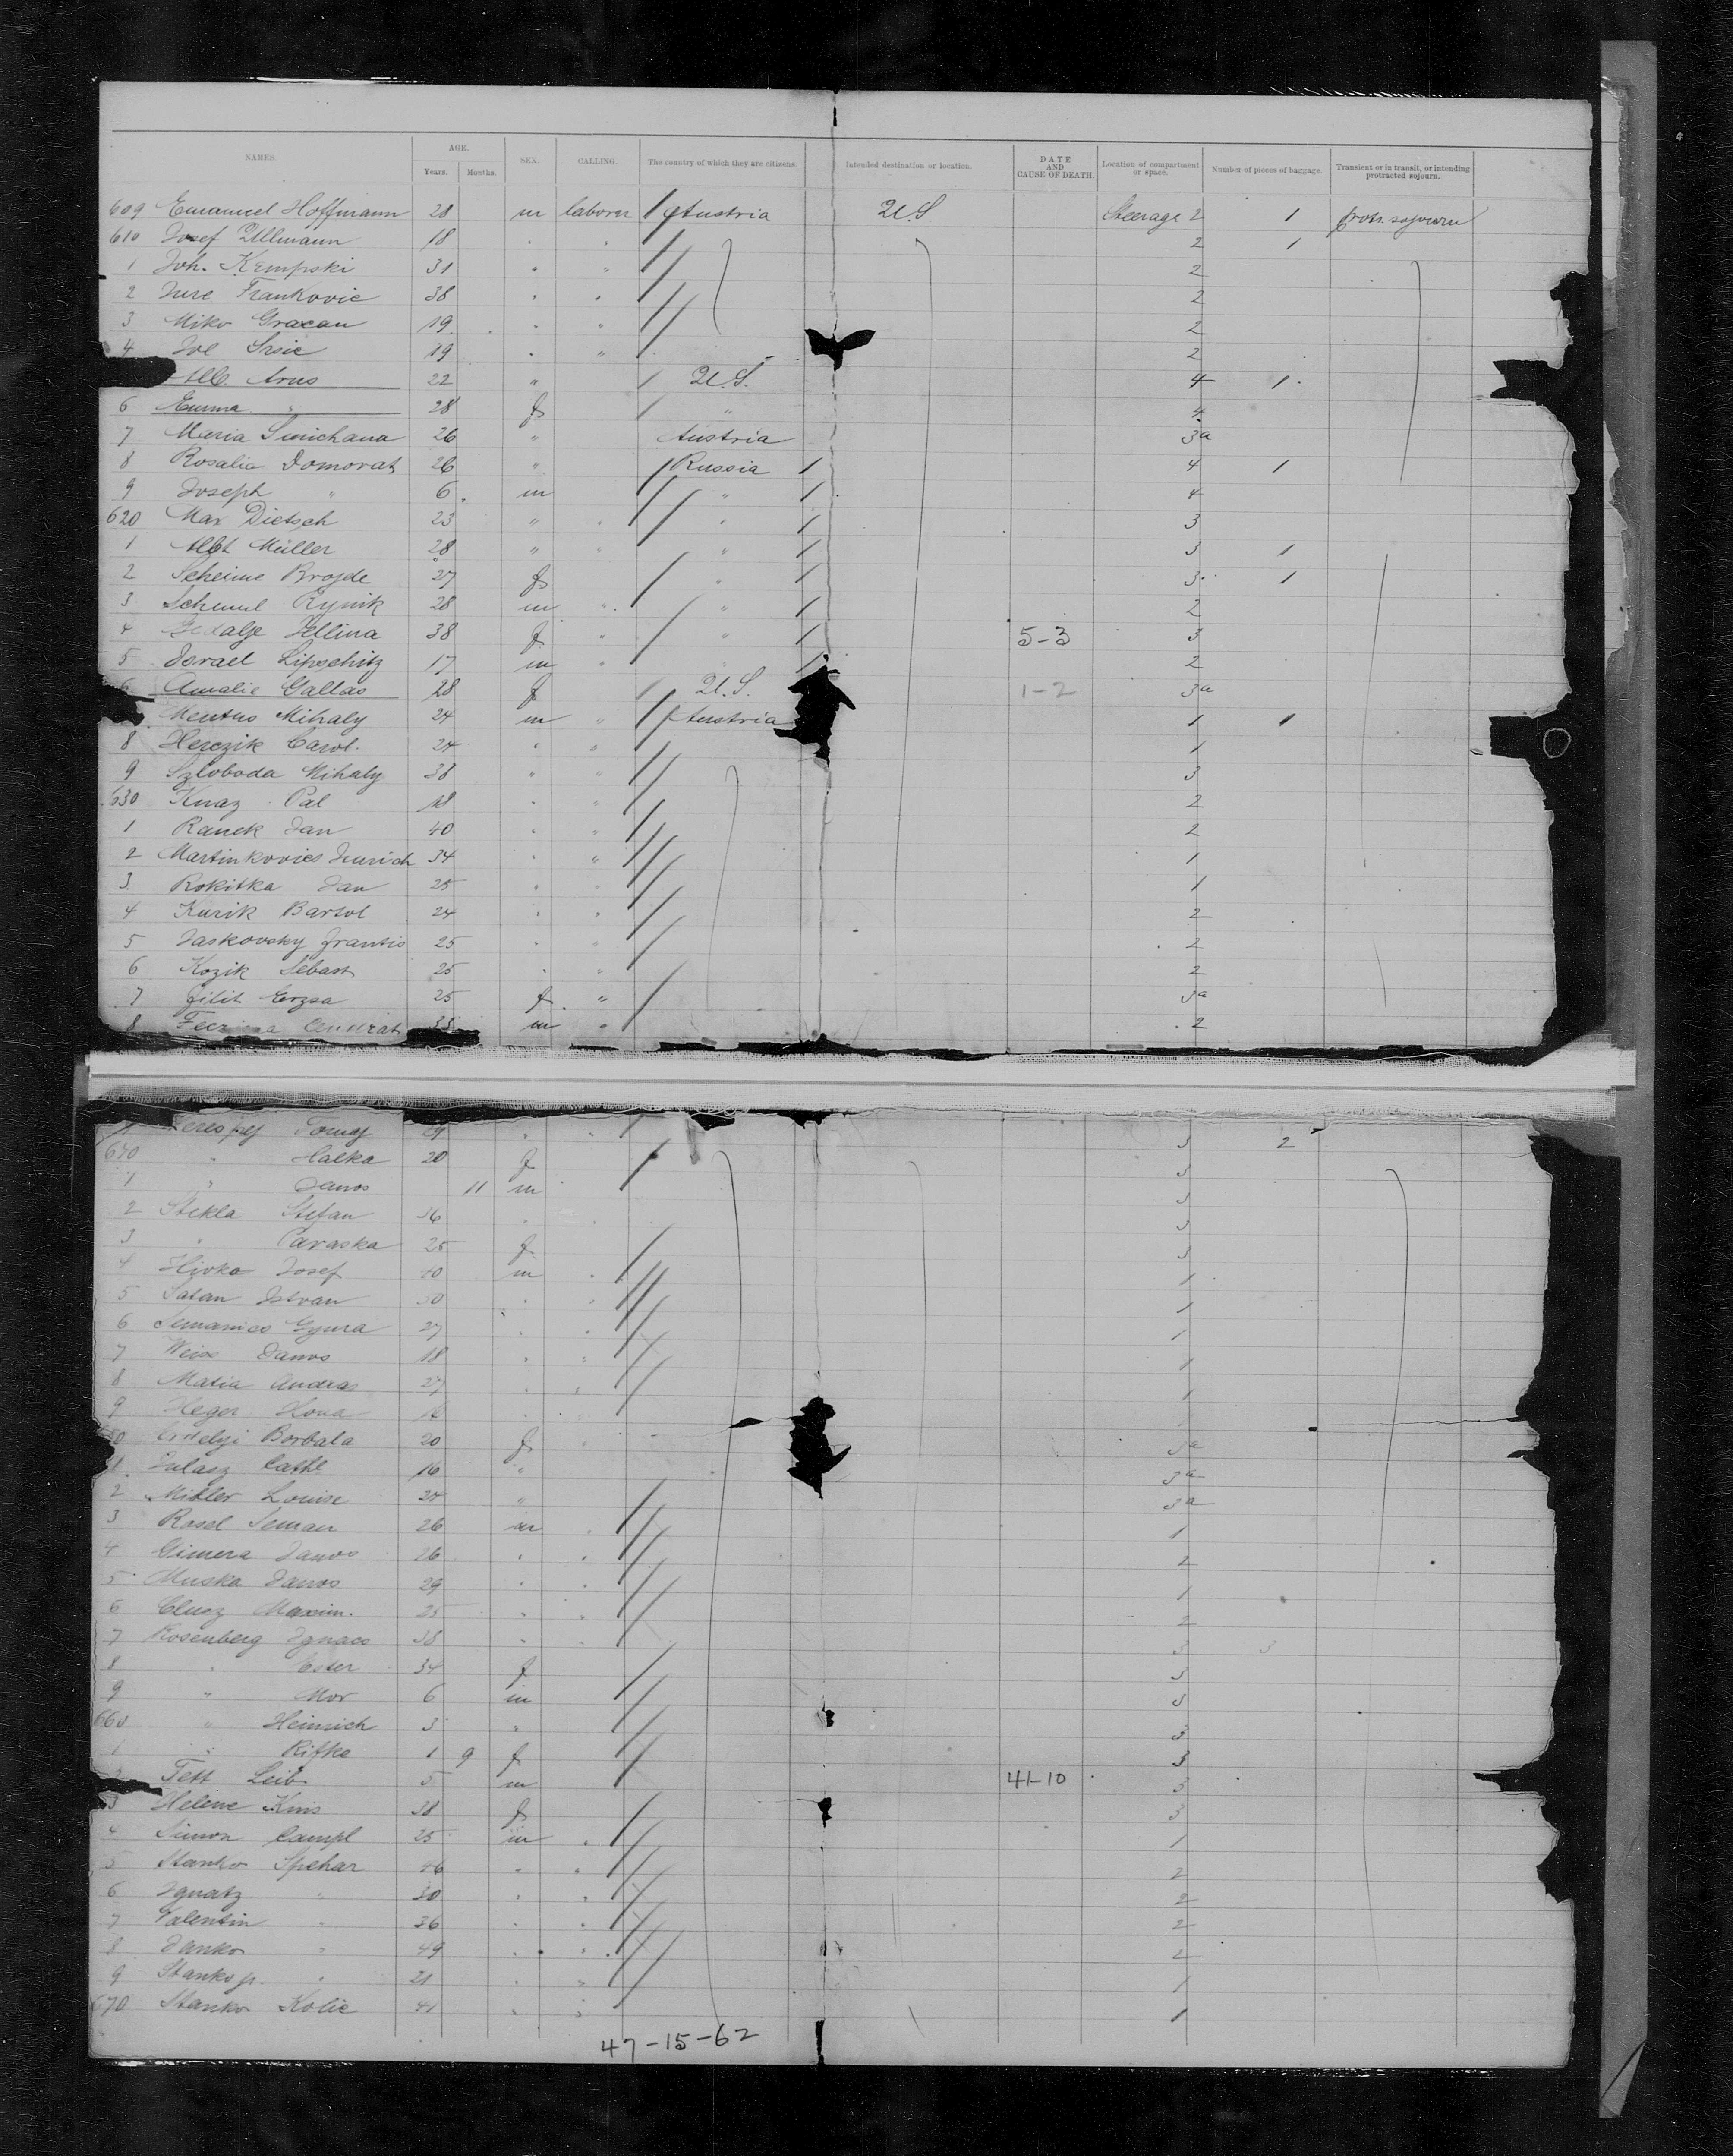 NAMES. AGE. SEX. CALLING. The country of which they are citizens. Intended destination or location. DATE AND CAUSE OF DEATH. Location of compartment or space. Number of pieces of baggage. Transient or in transit, or intending protracted sojourn.
Years. Months.
609 Emanuel Hoffmann 28 m laborer Austria U.S. Steerage 2 1 protr. sojourn
610 Josef Ullmann 18 " " 2 1
1 Joh. Kempski 31 " " 2
2 Jure Frankovic 38 " " 2
3 Miko Gracan 19 " " 2
4 Joe Srsic 19 " " 2
Alb. Arns 22 " U.S. 4 1
6 Emma " 28 f " 4
7 Maria Smichana 26 " Austria 3a
8 Rosalia Domorat 26 " Russia 4 1
9 Joseph " 6 m " 4
620 Max Dietsch 23 " " " 3
1 Albt Müller 28 " " " 3 1
2 Scheine Brojde 27 f " 3 1
3 Schmul Rymik 28 m " " 2
4 Gedalje Jellina 38 f " " 5-3 3
5 Israel Lipschitz 17 m " " 2
6 Amalie Gallas 28 f U.S. 1-2 3a
Mentus Mihaly 24 m " Austria 1 1
8 Herczik Carol. 24 " " 1
9 Szloboda Mihaly 38 " " 3
630 Knaz Pal 18 " " 2
1 Ranek Jan 40 " " 2
2 Martinkovics Jurich 34 " " 1
3 Rokitka Jan 25 " " 1
4 Kurik Bartol 24 " " 2
5 Jaskovsky Frantis 25 " " 2
6 Kozik Sebast 25 " " 2
7 Filit Erzsa 25 f " 3a
8 Andrat 33 m " 2
Tomaj 29 " " 3 2
640 " Halka 20 f 3
1 " Janos 11 m 3
2 Stekla Stefan 36 " " 3
3 " Paraska 25 f 3
4 Hivka Josef 40 m " 1
5 Satan Istvan 30 " " 1
6 Semanics Gyura 27 " " 1
7 Weiss Janos 18 " " 1
8 Matia Andras 27 " " 1
9 Heger Ilona 16 "
50 Erdelyi Borbala 20 f " 3a
1 Julasz Cathl 16 " 3a
2 Mitler Louise 24 " 3a
3 Rosel Seman 26 m " 1
4 Gimera Janos 26 " " 2
5 Muska Janos 29 " " 1
6 Clusz Maxim. 25 " " 2
7 Rosenberg Ignacs 38 " " 3 3
8 " Ester 34 f 3
9 " Mor 6 m 3
660 " Heinrich 3 " 3
1 " Rifke 1 9 f 3
2 Fett Leib 5 m 41-10 3
3 Helene Kins 38 f 3
4 Simon Campl 25 m " 1
5 Stanko Spehar 46 " " 2
6 Ignatz " 30 " " 2
7 Valentin " 36 " " 2
8 Janko " 49 " " 2
9 Stanko jr. " 21 " " 1
670 Stanko Kolic 41 " " 1
47-15-62